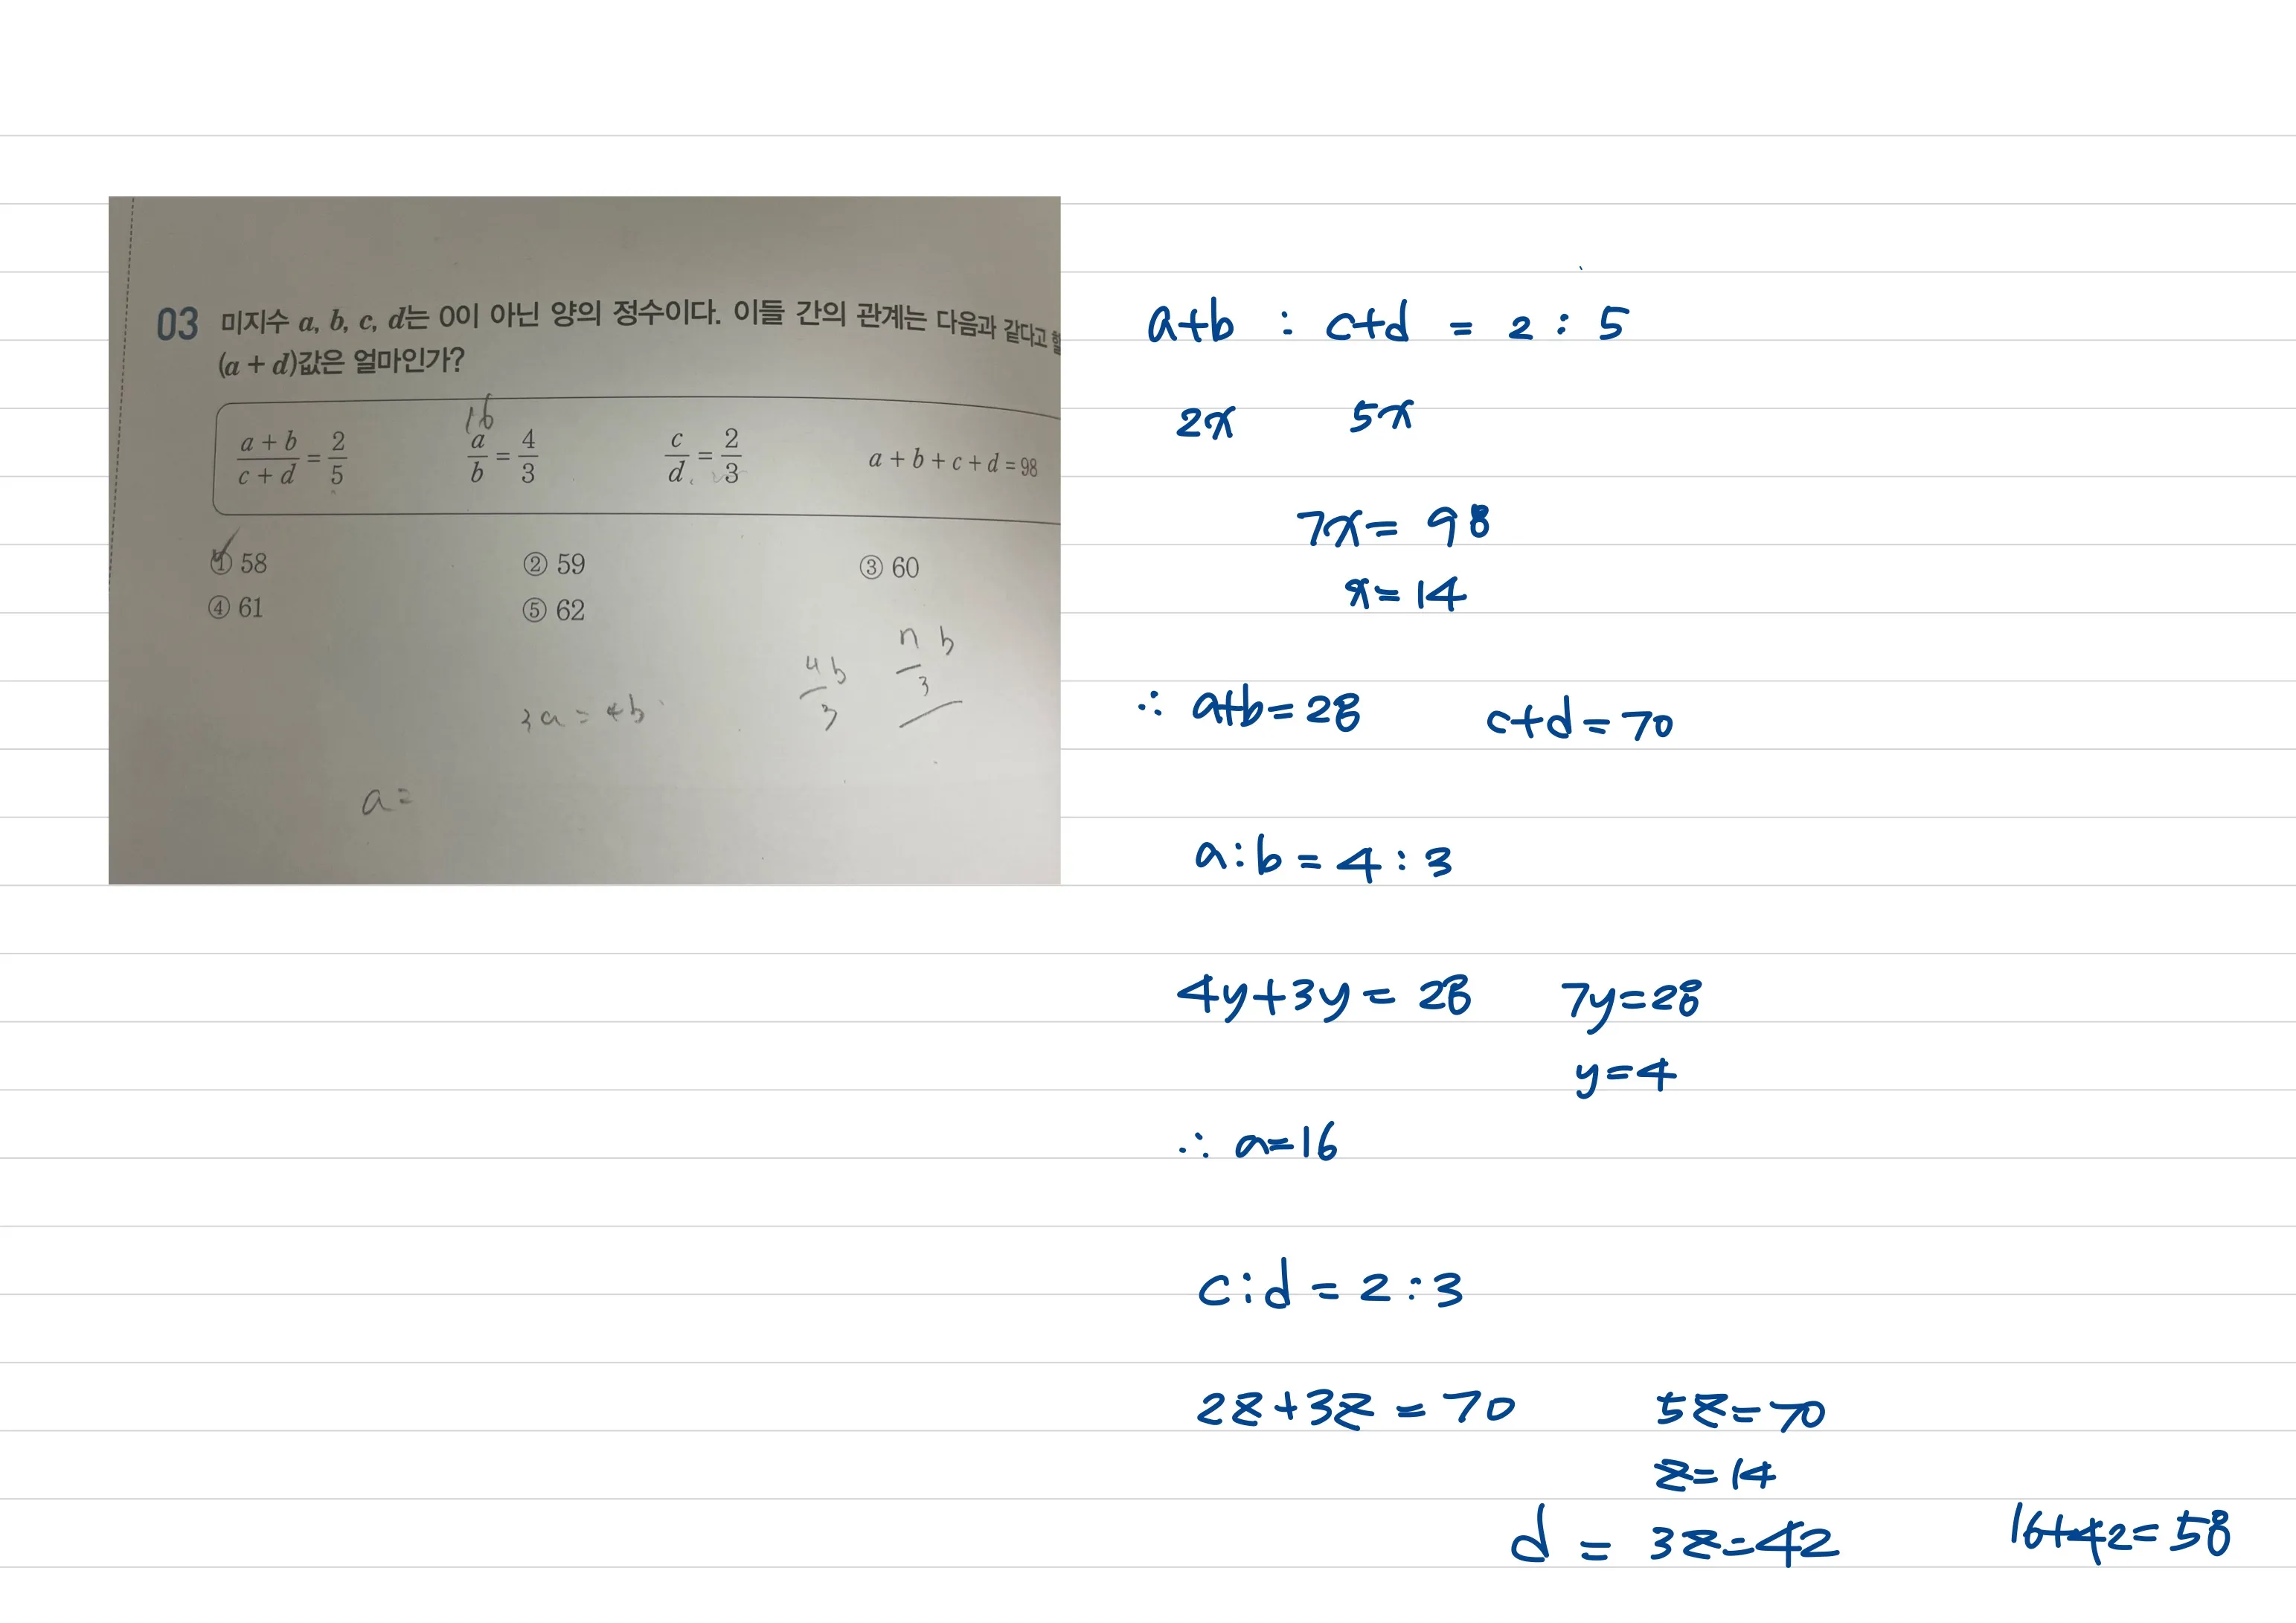 03 미지수 a, b, c, d는 0이 아닌 양의 정수이다. 이들 간의 관계는 다음과 같다고
(a + d)값은 얼마인가?
16
(a + b)/(c + d) = 2/5 a/b = 4/3 c/d = 2/3 a + b + c + d = 98
① 58 ② 59 ③ 60
④ 61 ⑤ 62
4b/3 b
3
3a = 4b
a =
a+b : c+d = 2 : 5
2x 5x
7x = 98
x = 14
∴ a+b = 28 c+d = 70
a : b = 4 : 3
4y+3y = 28 7y = 28
y = 4
∴ a = 16
c : d = 2 : 3
2z+3z = 70 5z = 70
z = 14
d = 3z = 42 16+42 = 58